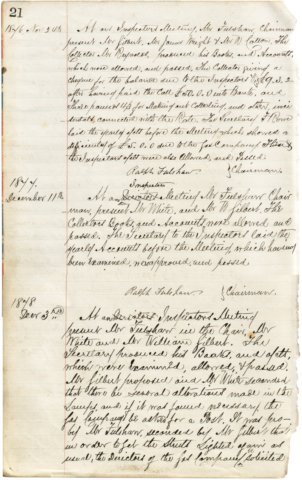 21
1876 Nov 24th At an Inspectors Meeting, Mr Fulshaw Chairman
present Mr Gilbert, Mr James Wright & Mr W Cotton. The
Collector Mr Reynolds, produced his Books, and Accounts,
which were allowed, and passed, The Collector giving a
cheque for the balance due to the Inspectors
after having paid the Call £50.0.0 out Bank, and
incid
entals, connected with the Rate. The Secretary
laid the yearly a/ctt before the Meeting which showed a
of £5.0.0 due to the Gas Company,
the Inspectors a/ctt were also allowed, and Passed.
Ralph Fulshaw } Chairman.
1877.
December 11th
Inspectors
At an Directors Meeting Mr Fulshaw Chair
man, present Mr White, and Mr W Gilbert, The
Collectors Books, and Accounts, were allowed, and
passed. The Secretary to the Inspectors laid the
yearly Accounts before the Meeting which having
been examined, were approved, and passed.
Ralph Fulshaw } Chairman.
1878
Decr 3rd
At an Directors Inspectors Meeting
present Mr Fulshaw in the Chair, Mr
White and Mr William Gilbert. The
Secretary produced his Books, and a/ctt,
which were examined, allowed, & passed.
Mr Gilbert proposed and Mr White seconded
that there be several alterations made in the
Lamps, and if it was found necessary the
Gas Company be asked for a Post. It was pro-
by Mr Fulshaw, seconded by Mr Gilbert that
in order to get the Streets Lighted again as
usual, the Directors of the Gas Company be solicited